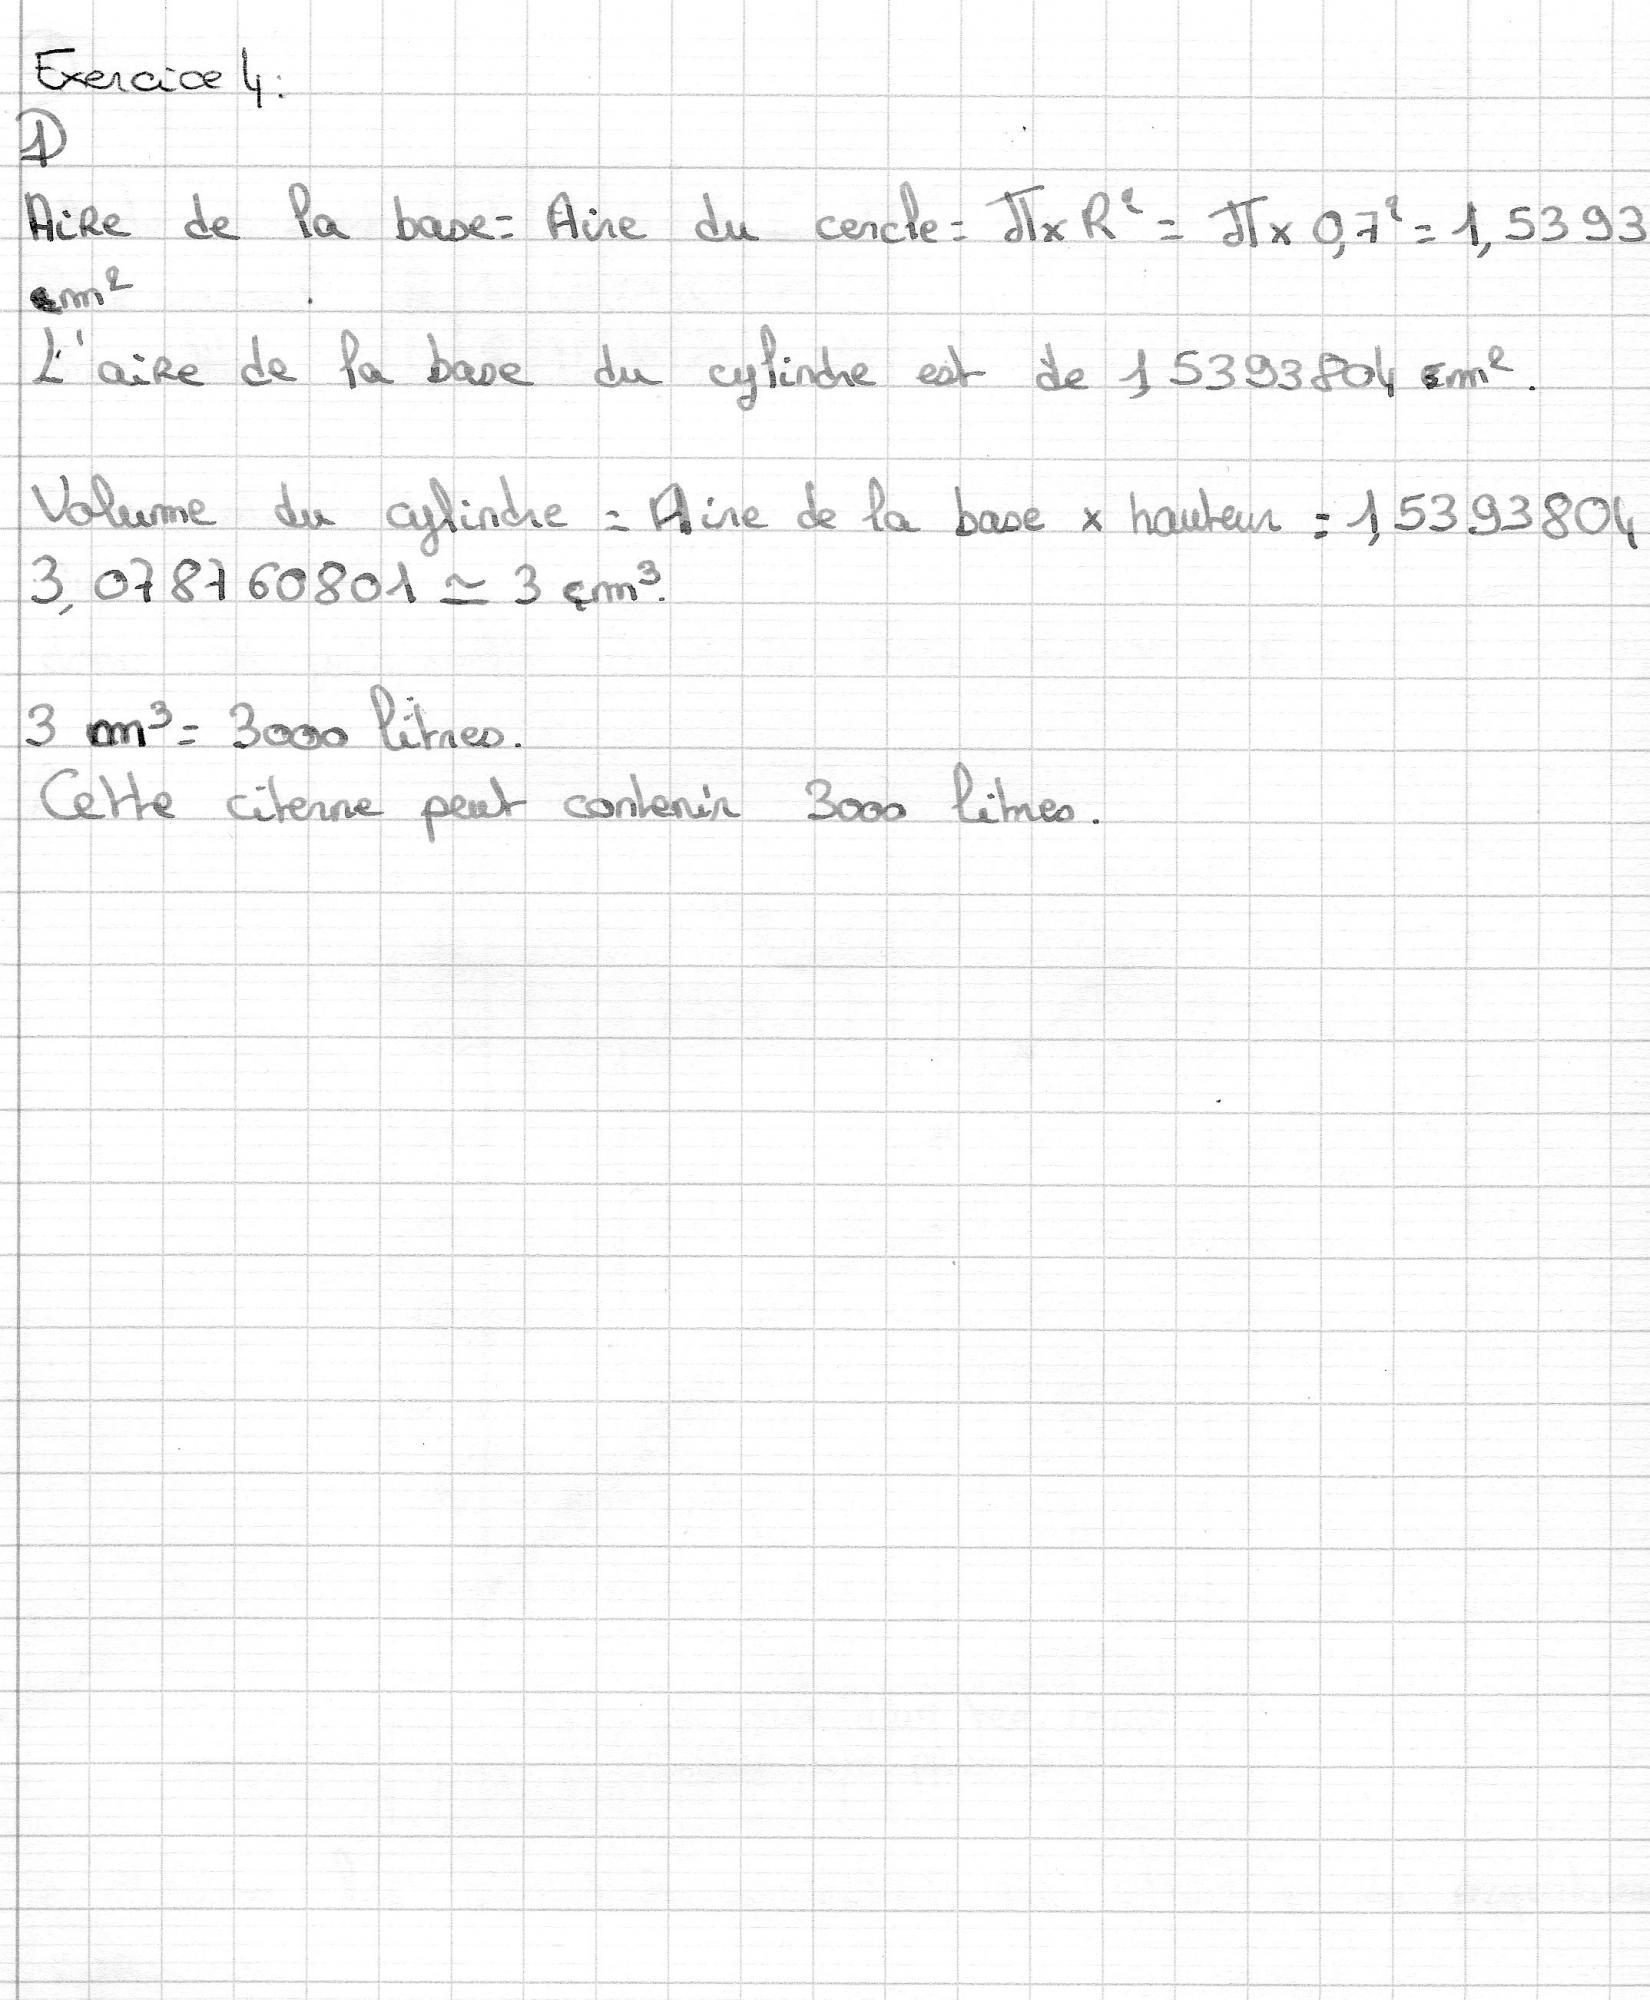 Exercice 4:
1)
Aire de la base = Aire du cercle = π x R² = π x 0,7² = 1,5393
m²
L'aire de la base du cylindre est de 1,5393804 m².
Volume du cylindre = Aire de la base x hauteur = 1,5393804
3,078760801 ≃ 3 m³.
3 m³ = 3000 litres.
Cette citerne peut contenir 3000 litres.